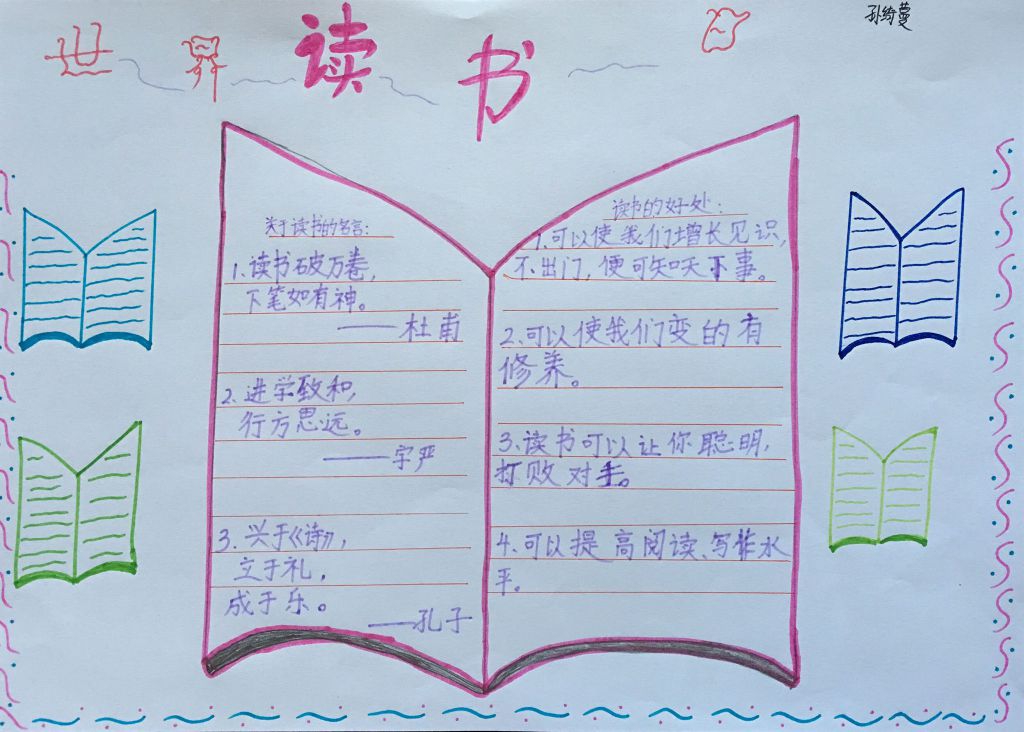 世界读书日
孙绮蔓
关于读书的名言:
1.读书破万卷,
下笔如有神。
——杜甫
2.进学致和,
行方思远。
——字严
3.兴于《诗》,
立于礼,
成于乐。
——孔子
读书的好处:
1.可以使我们增长见识,
不出门,便可知天下事。
2.可以使我们变的有
修养。
3.读书可以让你聪明,
打败对手。
4.可以提高阅读、写作水
平。